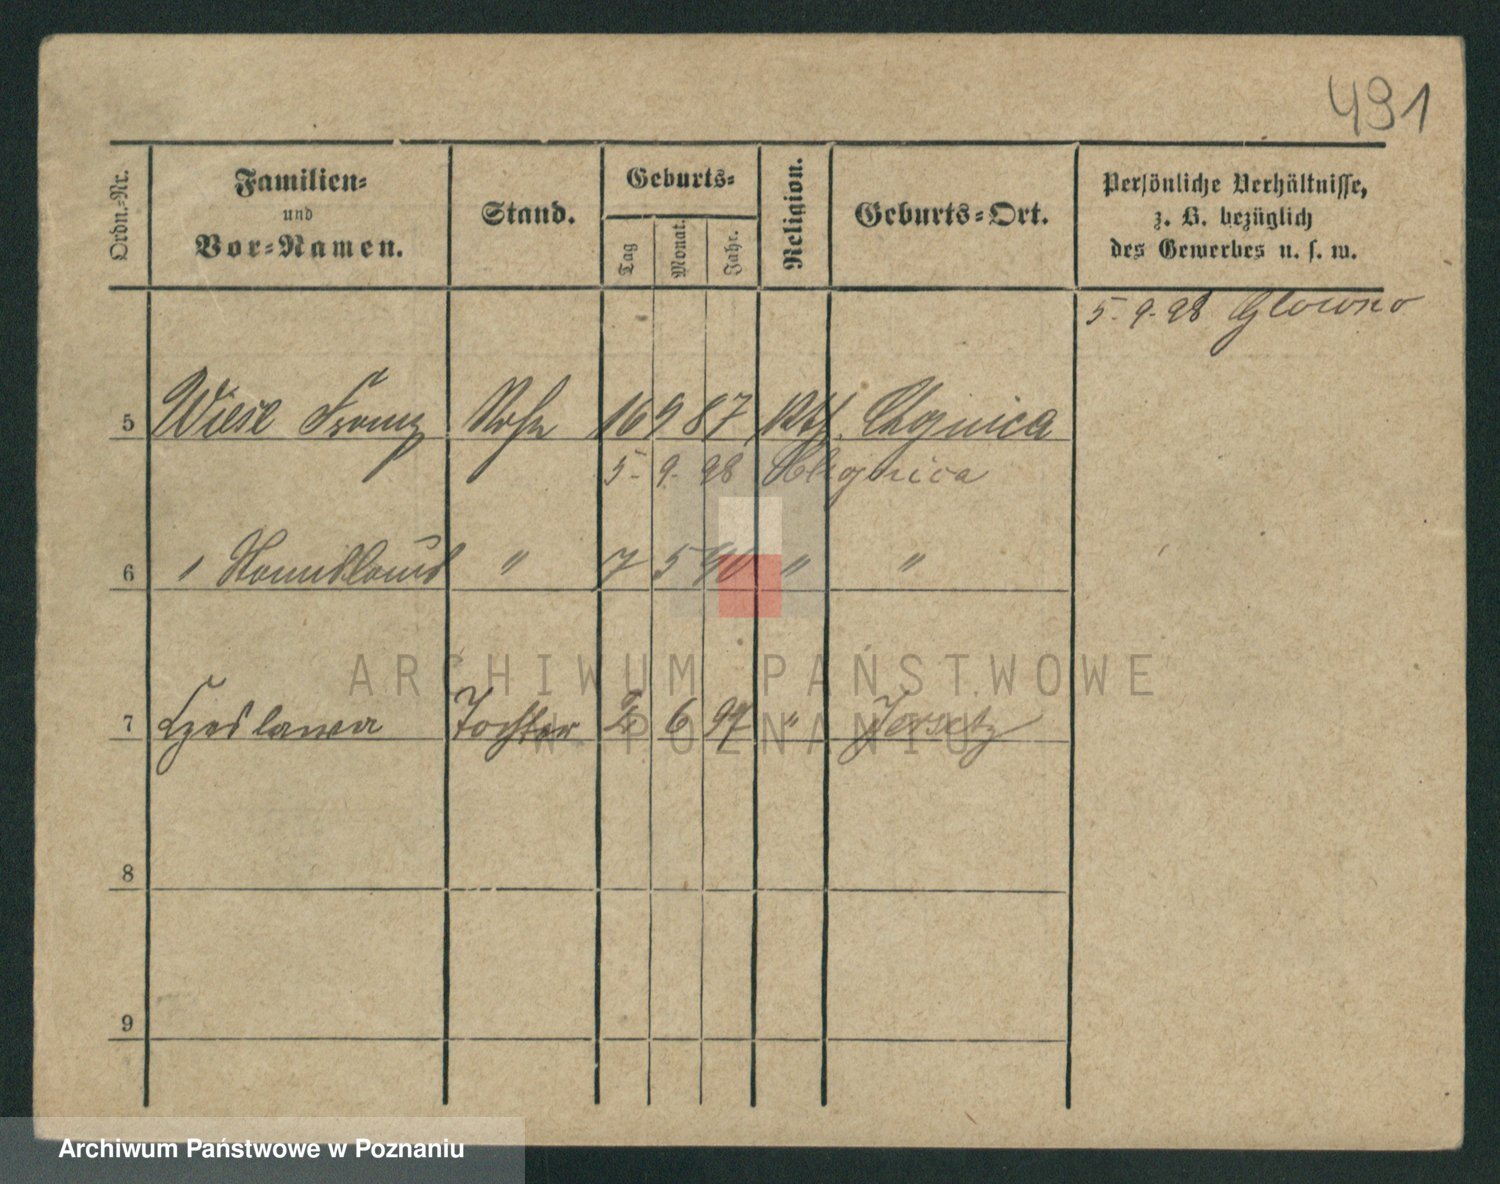 491
Ordn.-Nr.
Familien-
und
Vor-Namen.
Stand.
Geburts-
Tag
Monat.
Jahr.
Religion.
Geburts-Ort.
Persönliche Verhältnisse,
z. B. bezüglich
des Gewerbes u. s. w.
5. 9. 98 Glowno
5 Wiese Franz Sohn 16 9 87 Kth. Chojnica
5. 9. 98 Chojnica
6 " " 7 5 90 " "
ARCHIWUM PAŃSTWOWE
W POZNANIU
7 Czeslawa Tochter 6 97 " Jersitz
8
9
Archiwum Państwowe w Poznaniu